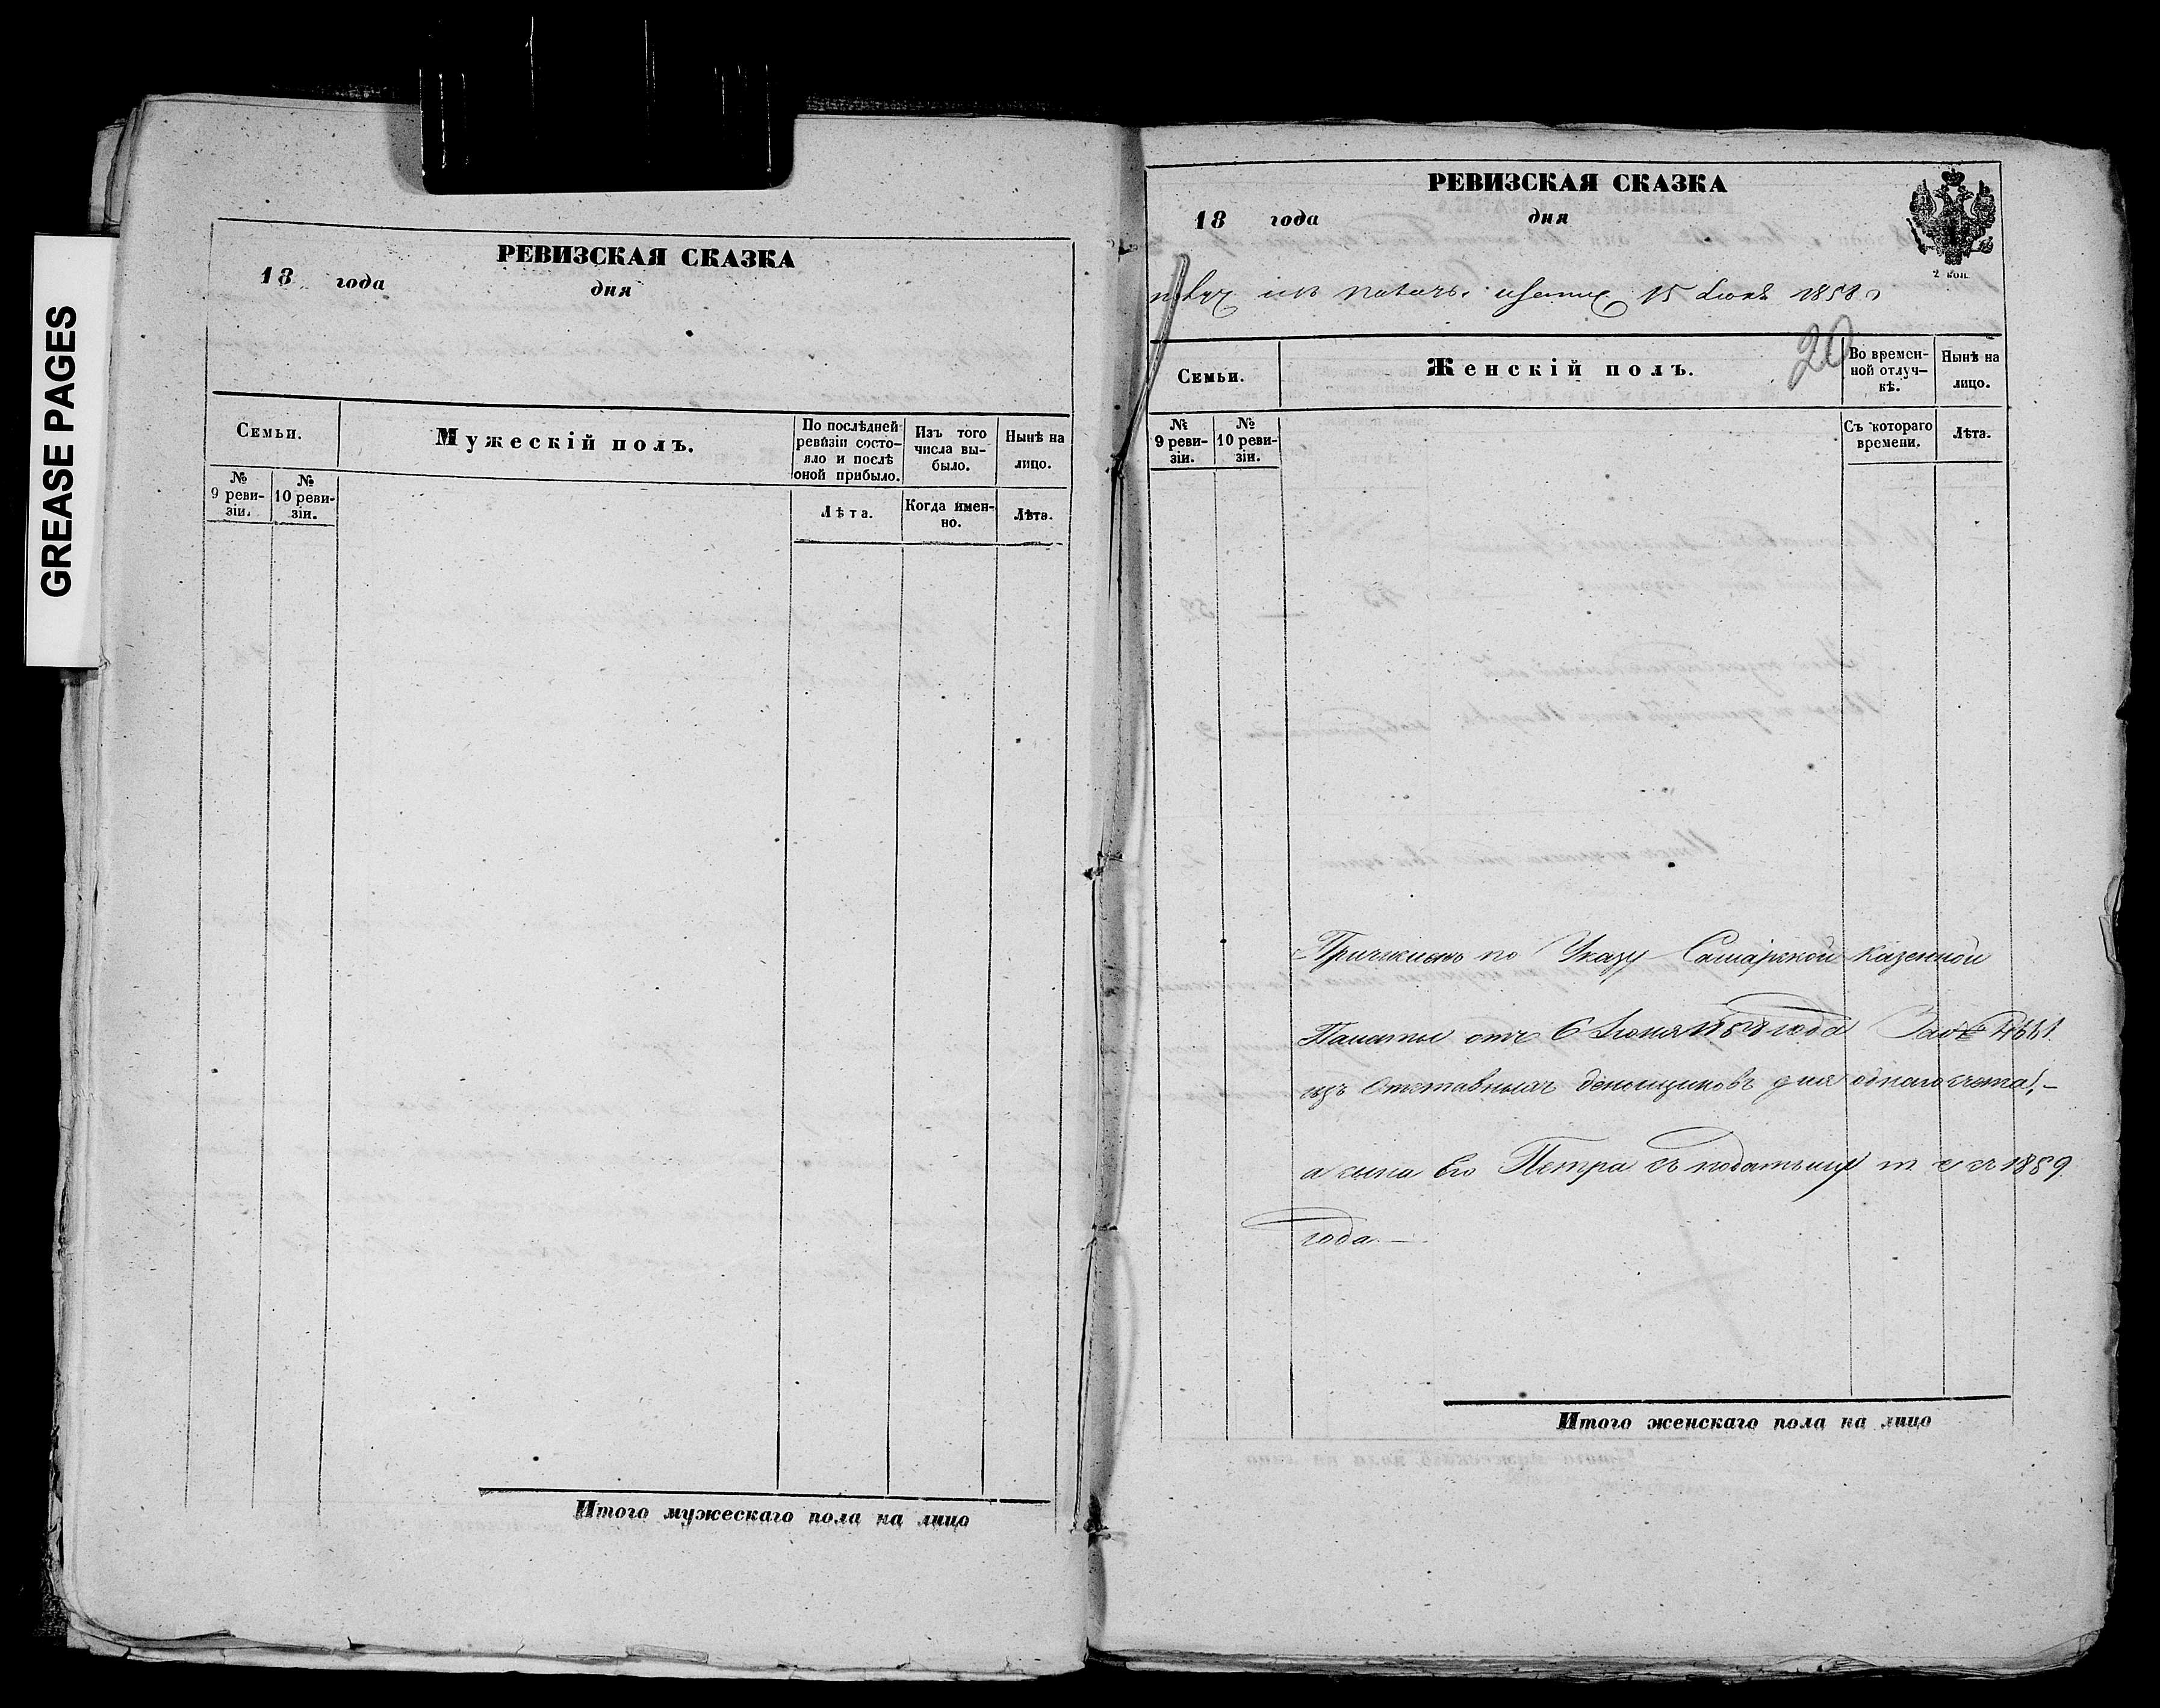 GREASE PAGES
РЕВИЗСКАЯ СКАЗКА
18 года дня
Семьи.
Мужескій полъ.
По послѣдней ревизіи состояло и послѣ оной прибыло.
Изъ того числа выбыло.
Нынѣ на лицо.
№ 9 ревизіи.
№ 10 ревизіи.
Лѣта.
Когда именно.
Лѣта.
Итого мужескаго пола на лицо
РЕВИЗСКАЯ СКАЗКА
18 года дня
2 коп.
15 Іюня 1858
20
Семьи.
Женскій полъ.
Во временной отлучкѣ.
Нынѣ на лицо.
№ 9 ревизіи.
№ 10 ревизіи.
Съ котораго времени.
Лѣта.
Причисленъ по Указу Самарской Казенной
Палаты отъ 6 Іюня 1858 года За №
изъ Отставныхъ деньщиковъ для однаго счета,
а сына Его Петра съ податьми съ 1859
года.
Итого женскаго пола на лицо